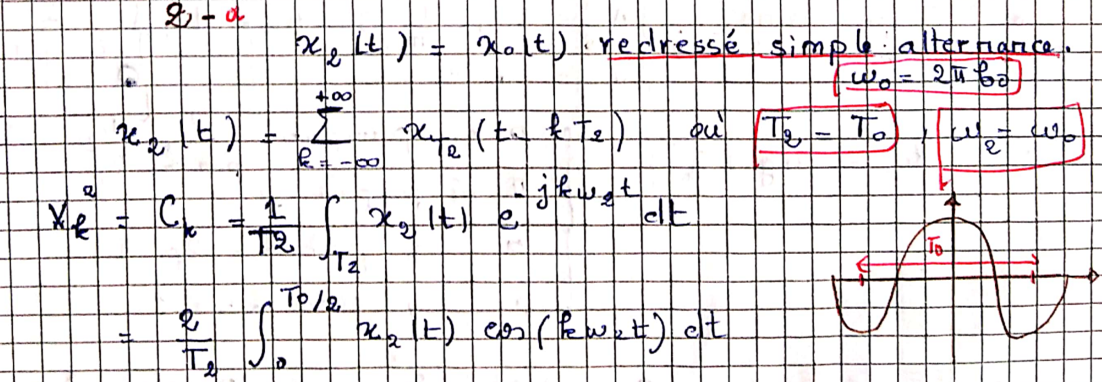 2-a
x₂(t) = x₀(t) redressé simple alternance.
ω₀ = 2πf₀
x₂(t) = ∑_{k=-∞}^{+∞} x_{T₂}(t - kT₂) où T₂ = T₀, ω₂ = ω₀
X_k² = C_k = 1/T₂ ∫_{T₂} x₂(t) e^{-jkω₂t} dt
T₀
= 2/T₂ ∫_0^{T₀/2} x₂(t) cos(kω₂t) dt